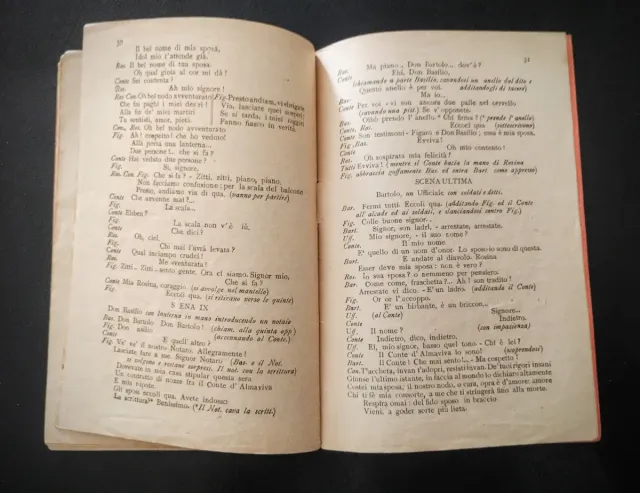 30
Il bel nome di mia sposa,
Idol mio t'attende già.
Ros. Il bel nome di tua sposa.
Oh qual gioia al cor mi dà!
Conte Sei contenta?
Ros. Ah mio signore!
Ros. Con Oh bel nodo avventurato
Che fa paghi i miei decri!
Alla fin de' miei martiri
Tu sentisti, amor, pietà.
Fig. Presto andiam, vi sbrigate
Via, lasciate quei sospiri;
Se si tarda, i miei raggiri
Fanno fiasco in verità.
Con. Ros. Oh bel nodo avventurato
Fig. Ah! cospetto! che ho veduto!
Alla porta una lanterna...
Due persone!.. che si fa?
Conte Hai veduto due persone?
Fig. Sì, signore,
Ros. Con. Fig. Che si fa? - Zitti, zitti, piano, piano,
Non facciamo confusione; per la scala del balcone
Presto, andiamo via di qua. (vanno per partire)
Conte Che avenne mai?...
Fig. La scala...
Conte Ebben?
Fig. La scala non v'è iò.
Conte Che dici?
Ros. Oh, ciel.
Fig. Chi mai l'avrà levata?
Conte Qual inciampo crudel!
Ros. Me sventurata!
Fig. Zitti.. Zitti... sento gente. Ora ci siamo. Signor mio,
Che si fa?
Conte Mia Rosina, coraggio. (si avvolge nel mantello)
Fig. Eccoli qua. (si ritirano verso le quinte)
S ENA IX
Don Basilio con lanterna in mano introducendo un notaio
Bas. Don Bartolo Don Bartolo! (chiam. alla quinta opp)
Fig. Don asilio (accennando al Conte.)
Conte E quell'altro?
Fig. Ve' ve' il nostro Notaro. Allegramente!
Lasciate fare a me. Signor Notaro (Bas. e il Not.
si volgono e restano sorpresi. Il not. con la scrittura)
Dovevate in mia casa stipular questa sera
Un contratto di nozze fra il conte d'Almaviva
E mia nipote.
Gli sposi eccoli qua. Avete indosso
La scrittura? Benissimo. (Il Not. cava la scritt.)
31
Bas. Ma piano... Don Bartolo... dov'è?
Conte Ehi, Don Basilio,
(chiamando a parte Basilio, cavandosi un anello dal dito e
Quanto anello è per voi. additandogli di tacere)
Bas. Ma io...
Conte Per voi - vi son ancora due palle nel cervello
(cavando una pist.) Se v'opponete.
Bas. Oibò! prendo l'anello. Chi firma? (prende l'anello)
Con. Ros. Eccoci qua (sottoscrivono)
Conte Son testimoni - Figaro e Don Basilio; essa è mia sposa,
Fig. Bas. Evviva!
Conte Oh mio contento!
Ros. Oh sospirata mia felicità!
Tutti Evviva! (mentre il Conte bacia la mano di Rosina
Fig. abbraccia goffamente Bas. ed entra Bart. come appresso)
SCENA ULTIMA
Bartolo, an Uffiziale con soldati e detti.
Bar. Fermi tutti. Eccoli qua. (additando Fig. ed il Conte
all'alcade ed ai soldati, e slanciandosi contro Fig.)
Fig. Colle buone signor.
Bart. Signor, son ladri, - arrestate, arrestate.
Uff. Mio signore, - il suo nome?
Conte Il mio nome
E' quello di un uom d'onor. Lo sposo io sono di questa.
Bart. E andate al diavolo. Rosina
Esser deve mia sposa: non è vero?
Ros. Io sua sposa? o nemmeno per pensiero.
Bar. Come, come, fraschetta?... Ah! son tradito!
Arrestate vi dico. - E' un ladro (additando il Conte)
Fig. Or or l'accoppo.
Bart. E' un birbante, è un briccon...
Uff. Signore...
(al Conte)
Conte Indietro,
Uff. Il nome? (con impazienza)
Conte Indietro, dico, indietro.
Uff. Ei, mio signor, basso quel tono. - Chi è lei?
Conte Il Conte d'Almaviva io sono! (scoprendosi)
Bart. Il Conte! Che mai sento... - Ma cospetto!
Con. T'accheta, invan t'adopri, resisti invan. De' tuoi rigori insani
Giunse l'ultimo istante, in faccia al mondo io dichiaro altamente
Costei mia sposa, il nostro nodo, o cara, opra è d'amore: amore
Che ti fè mia consorte, a me che ti stringerà alla morte.
Respira omai: del fido sposo in braccio
Vieni, a goder sorte più lieta.